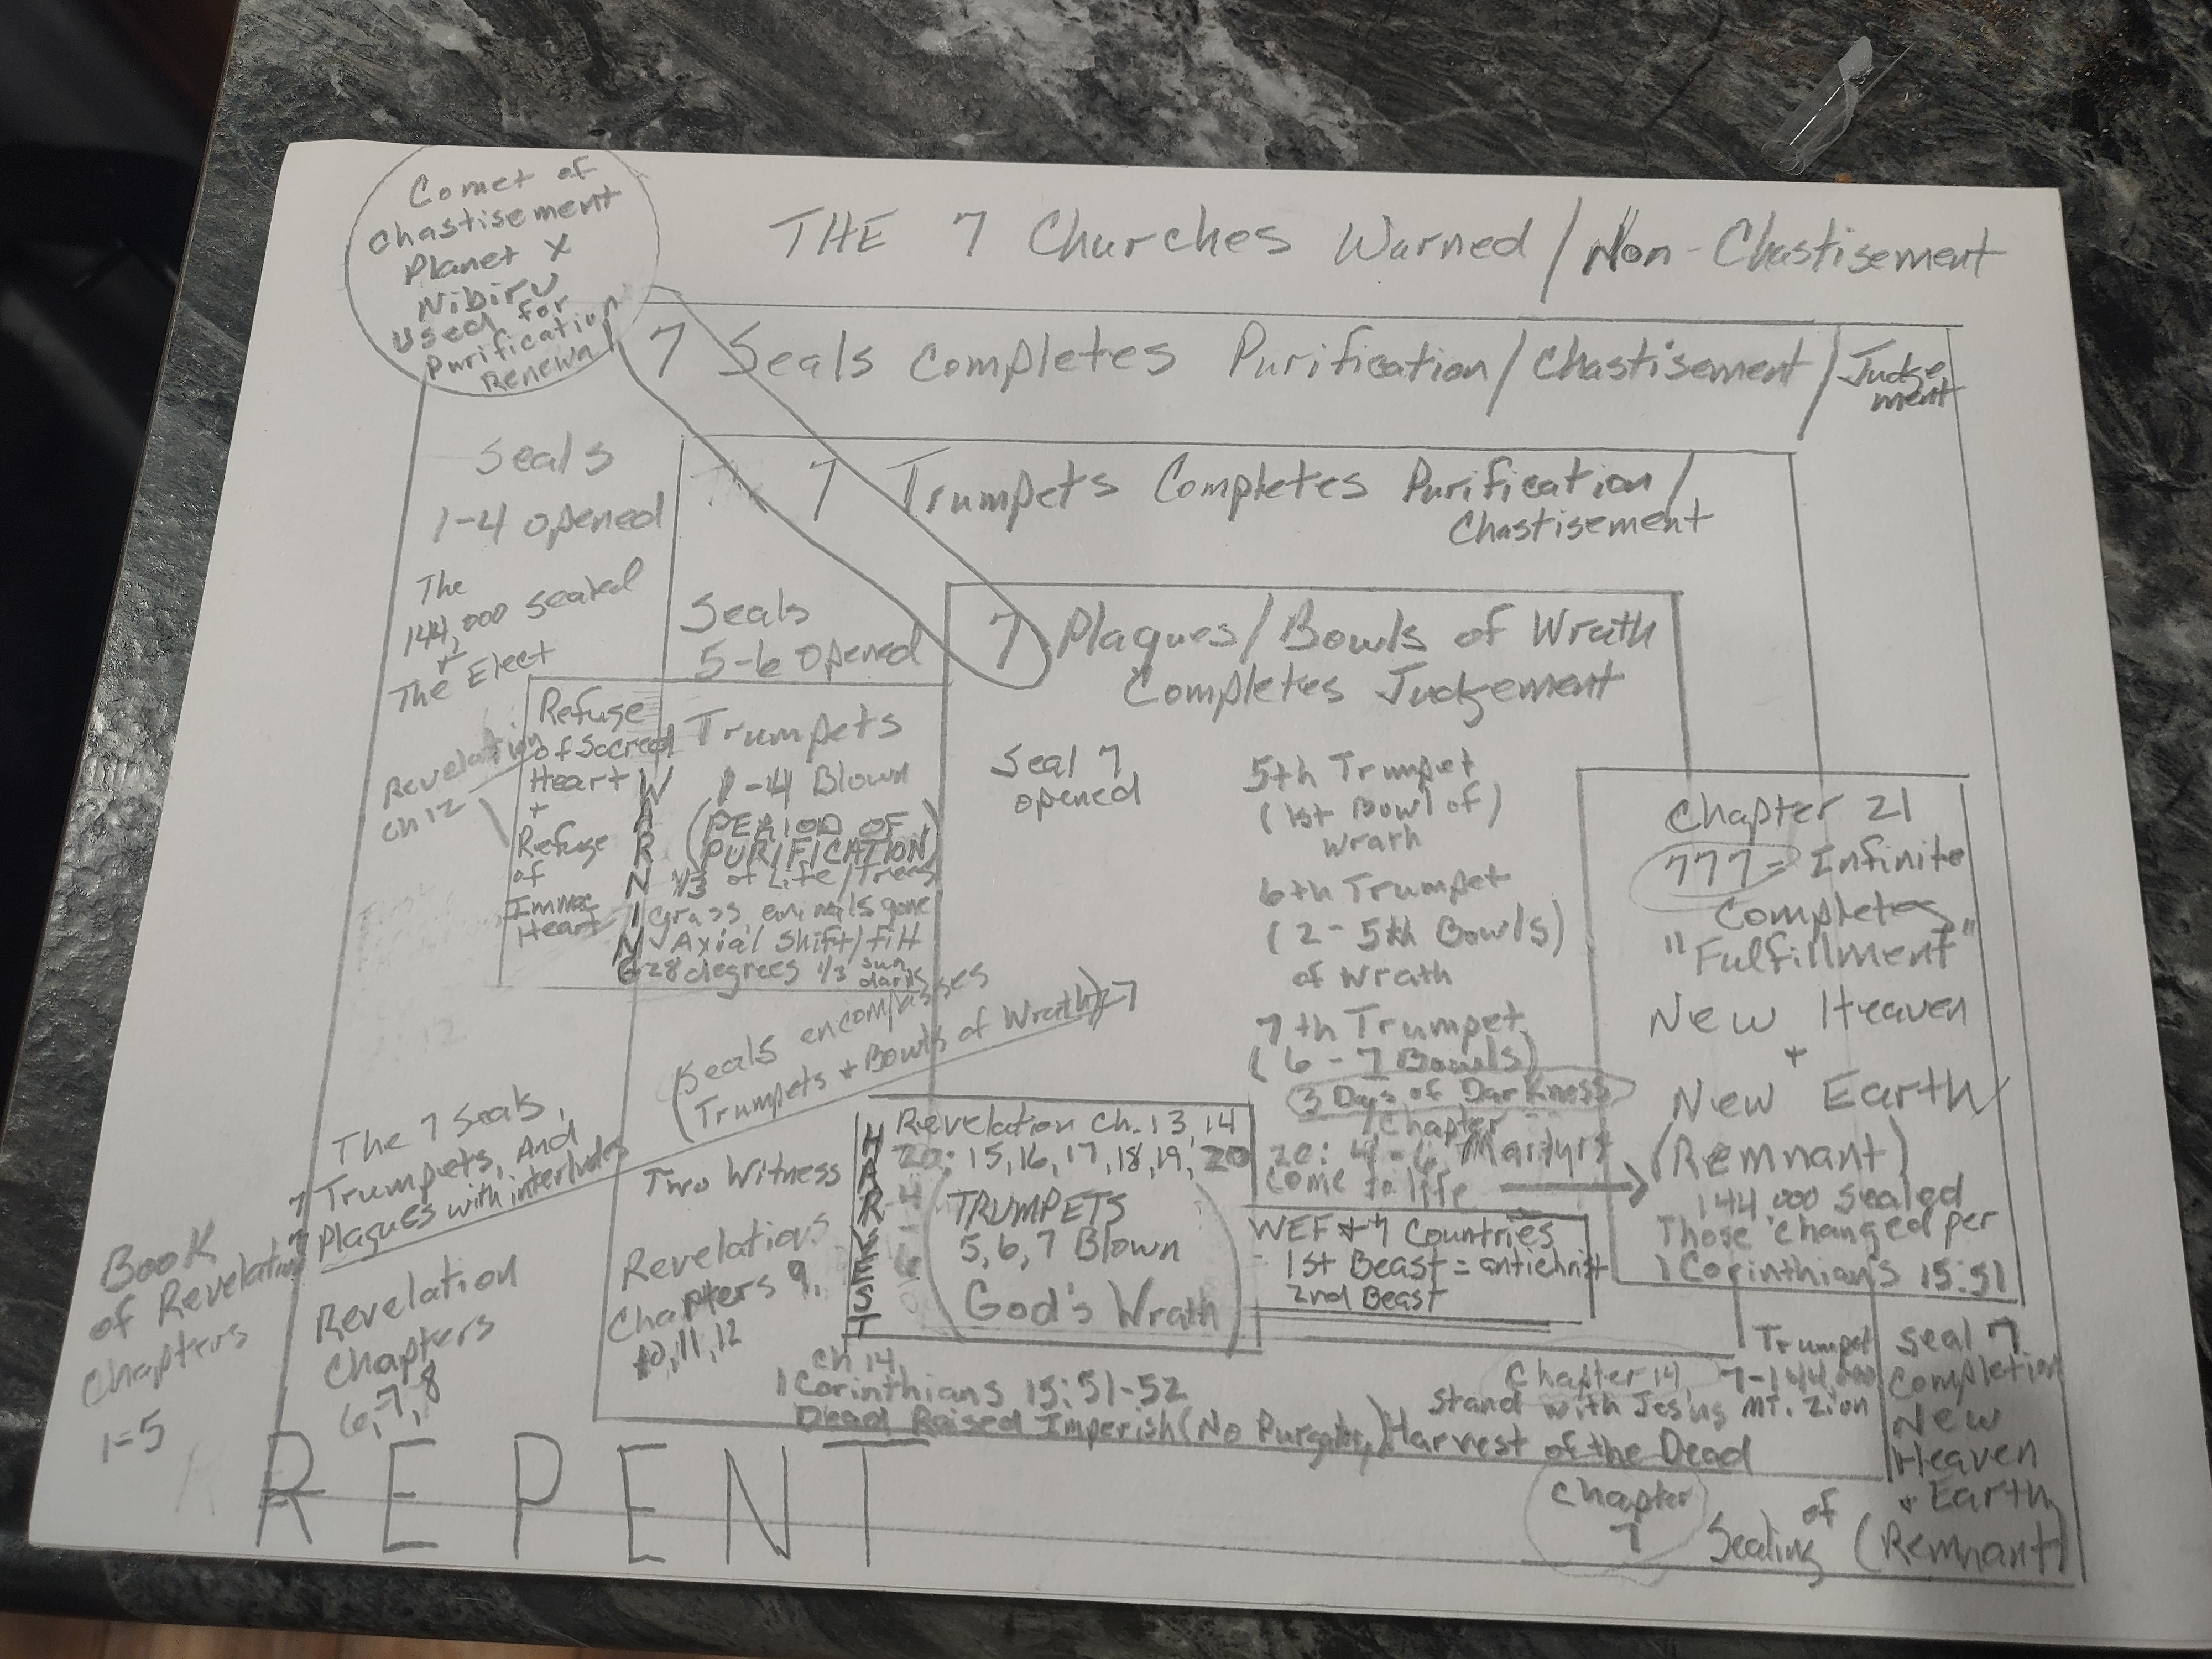 Comet of
Chastisement
Planet X
Nibiru
Used for
Purification
Renewal
THE 7 Churches Warned / Non-Chastisement
7 Seals Completes Purification / Chastisement / Judge
ment
7 Trumpets Completes Purification /
Chastisement
7 Plaques / Bowls of Wrath
Completes Judgement
Seals
1-4 opened
The
144,000 sealed
+
The Elect
Revelation
Ch 12
Seals
5-6 opened
Refuge
of Sacred
Heart
+
Refuge
of
Immac
Heart
WARNING
Trumpets
1-4 Blown
(PERIOD OF
PURIFICATION)
1/3 of Life / Trees
Grass, animals gone
Axial Shift / tilt
28 degrees 1/3 sun
darks
(Seals encompasses
Trumpets + Bowls of Wrath) 7
Seal 7
opened
5th Trumpet
(1st Bowl of)
Wrath
6th Trumpet
(2-5th Bowls)
of Wrath
7th Trumpet
(6-7 Bowls)
3 Days of Darkness
Chapter
20: 4-6 Martyrs
Come to life
Chapter 21
777 = Infinite
Completes
"Fulfillment"
New Heaven
+
New Earth
(Remnant)
144,000 sealed
Those changed per
1 Corinthians 15:51
The 7 Seals,
7 Trumpets, And
7 Plaques with interludes
Book
of Revelation
Chapters
1-5
Revelation
Chapters
6,7,8
Two Witness
Revelations
Chapters 9,
10,11,12
HARVEST
20:
4
-
6
Revelation Ch. 13, 14
15, 16, 17, 18, 19, 20
(TRUMPETS
5,6,7 Blown
God's Wrath)
WEF + 7 Countries
= 1st Beast = antichrist
2nd Beast
Ch 14,
1 Corinthians 15:51-52
Dead Raised Imperish (No Purgatory) Harvest of the Dead
Chapter 14
Trumpet
7-144,000
stand with Jesus MT. Zion
Seal 7
Completion
New
Heaven
+ Earth
(Remnant)
Chapter
7
Sealing of
REPENT